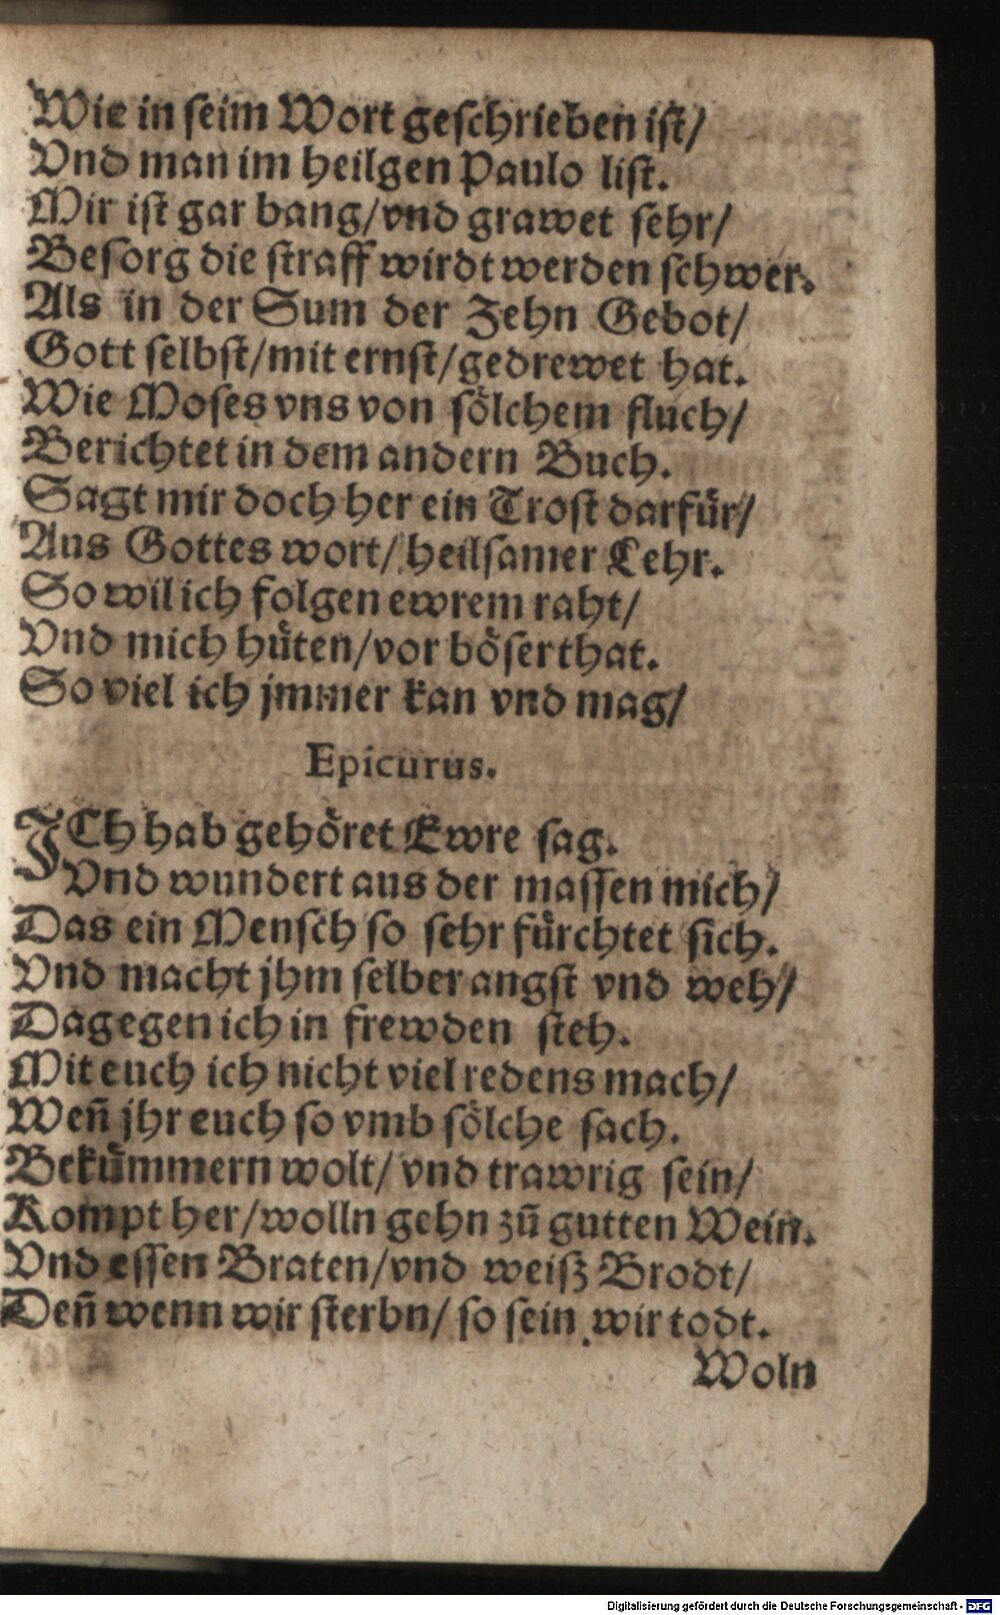 Wie in seim Wort geschrieben ist/
Vnd man im heilgen Paulo list.
Mir ist gar bang/vnd grawet sehr/
Besorg die straff wirdt werden schwer.
Als in der Sum der Zehn Gebot/
Gott selbst/mit ernst/gedrewet hat.
Wie Moses vns von sölchem fluch/
Berichtet in dem andern Buch.
Sagt mir doch her ein Trost darfür/
Aus Gottes wort/heilsamer Lehr.
So wil ich folgen ewrem raht/
Vnd mich hüten/vor böser that.
So viel ich jmmer kan vnd mag/
Epicurus.
ICh hab gehöret Ewre sag.
Vnd wundert aus der massen mich/
Das ein Mensch so sehr fürchtet sich.
Vnd macht jhm selber angst vnd weh/
Dagegen ich in frewden steh.
Mit euch ich nicht viel redens mach/
Weñ jhr euch so vmb sölche sach.
Bekümmern wolt/vnd trawrig sein/
Kompt her/wolln gehn zũ gutten Wein.
Vnd essen Braten/vnd weiß Brodt/
Deñ wenn wir sterbn/so sein wir todt.
Woln
Digitalisierung gefördert durch die Deutsche Forschungsgemeinschaft - DFG